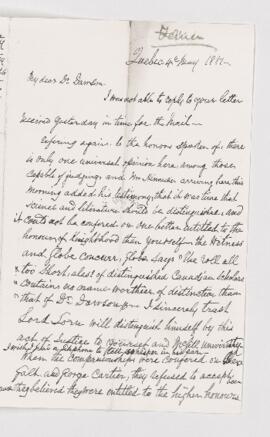 Quebec 4th May 1881-
My dear Dr. Dawson.
I was not able to reply to your letter
received yesterday in time for the Mail—
Refering again to the honors spoken of, there
is only one universal opinion here among those
capable of judging, and Mr arriving here this
morning added his testimony, that it was time that
science and literature should be distinguished, and
it could not be conferred on one better entitled to the
honour of knighthood than yourself - the Witness
and Globe concur, Globe says "The roll all
too short, alas! of distinguished Canadian scholars
contains no name worthier of distinction than
that of Dr Dawson" - I sincerely trust
Lord Lorne will distinguish himself by this
act of justice to yourself and McGill University
I wish I
When the Companionships were conferred on
Galt and George Cartier, they refused to accept
they believed they were entitled to the higher honours